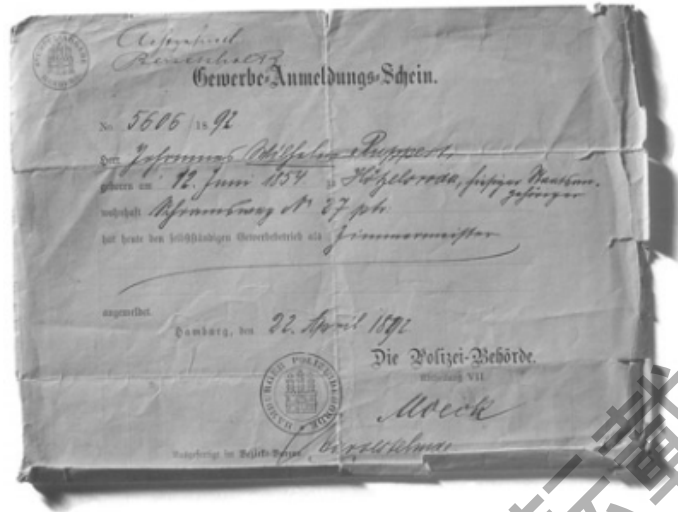 Gewerbe-Anmeldungs-Schein.
No. 5606/18 92
Herr Johannes Wilhelm Ruppert.
geboren am 12. Juni 1854 zu Hötzelsroda, hiesiger Staatsan-
gehöriger
wohnhaft Schramsweg No 27 ptr.
hat heute den selbstständigen Gewerbebetrieb als Zimmermeister
angemeldet.
Hamburg, den 22. April 1892
Die Polizei-Behörde.
Abtheilung VII.
HAMBURGER POLIZEIBEHÖRDE
Moeck
Ausgefertigt im Bezirks-Bureau